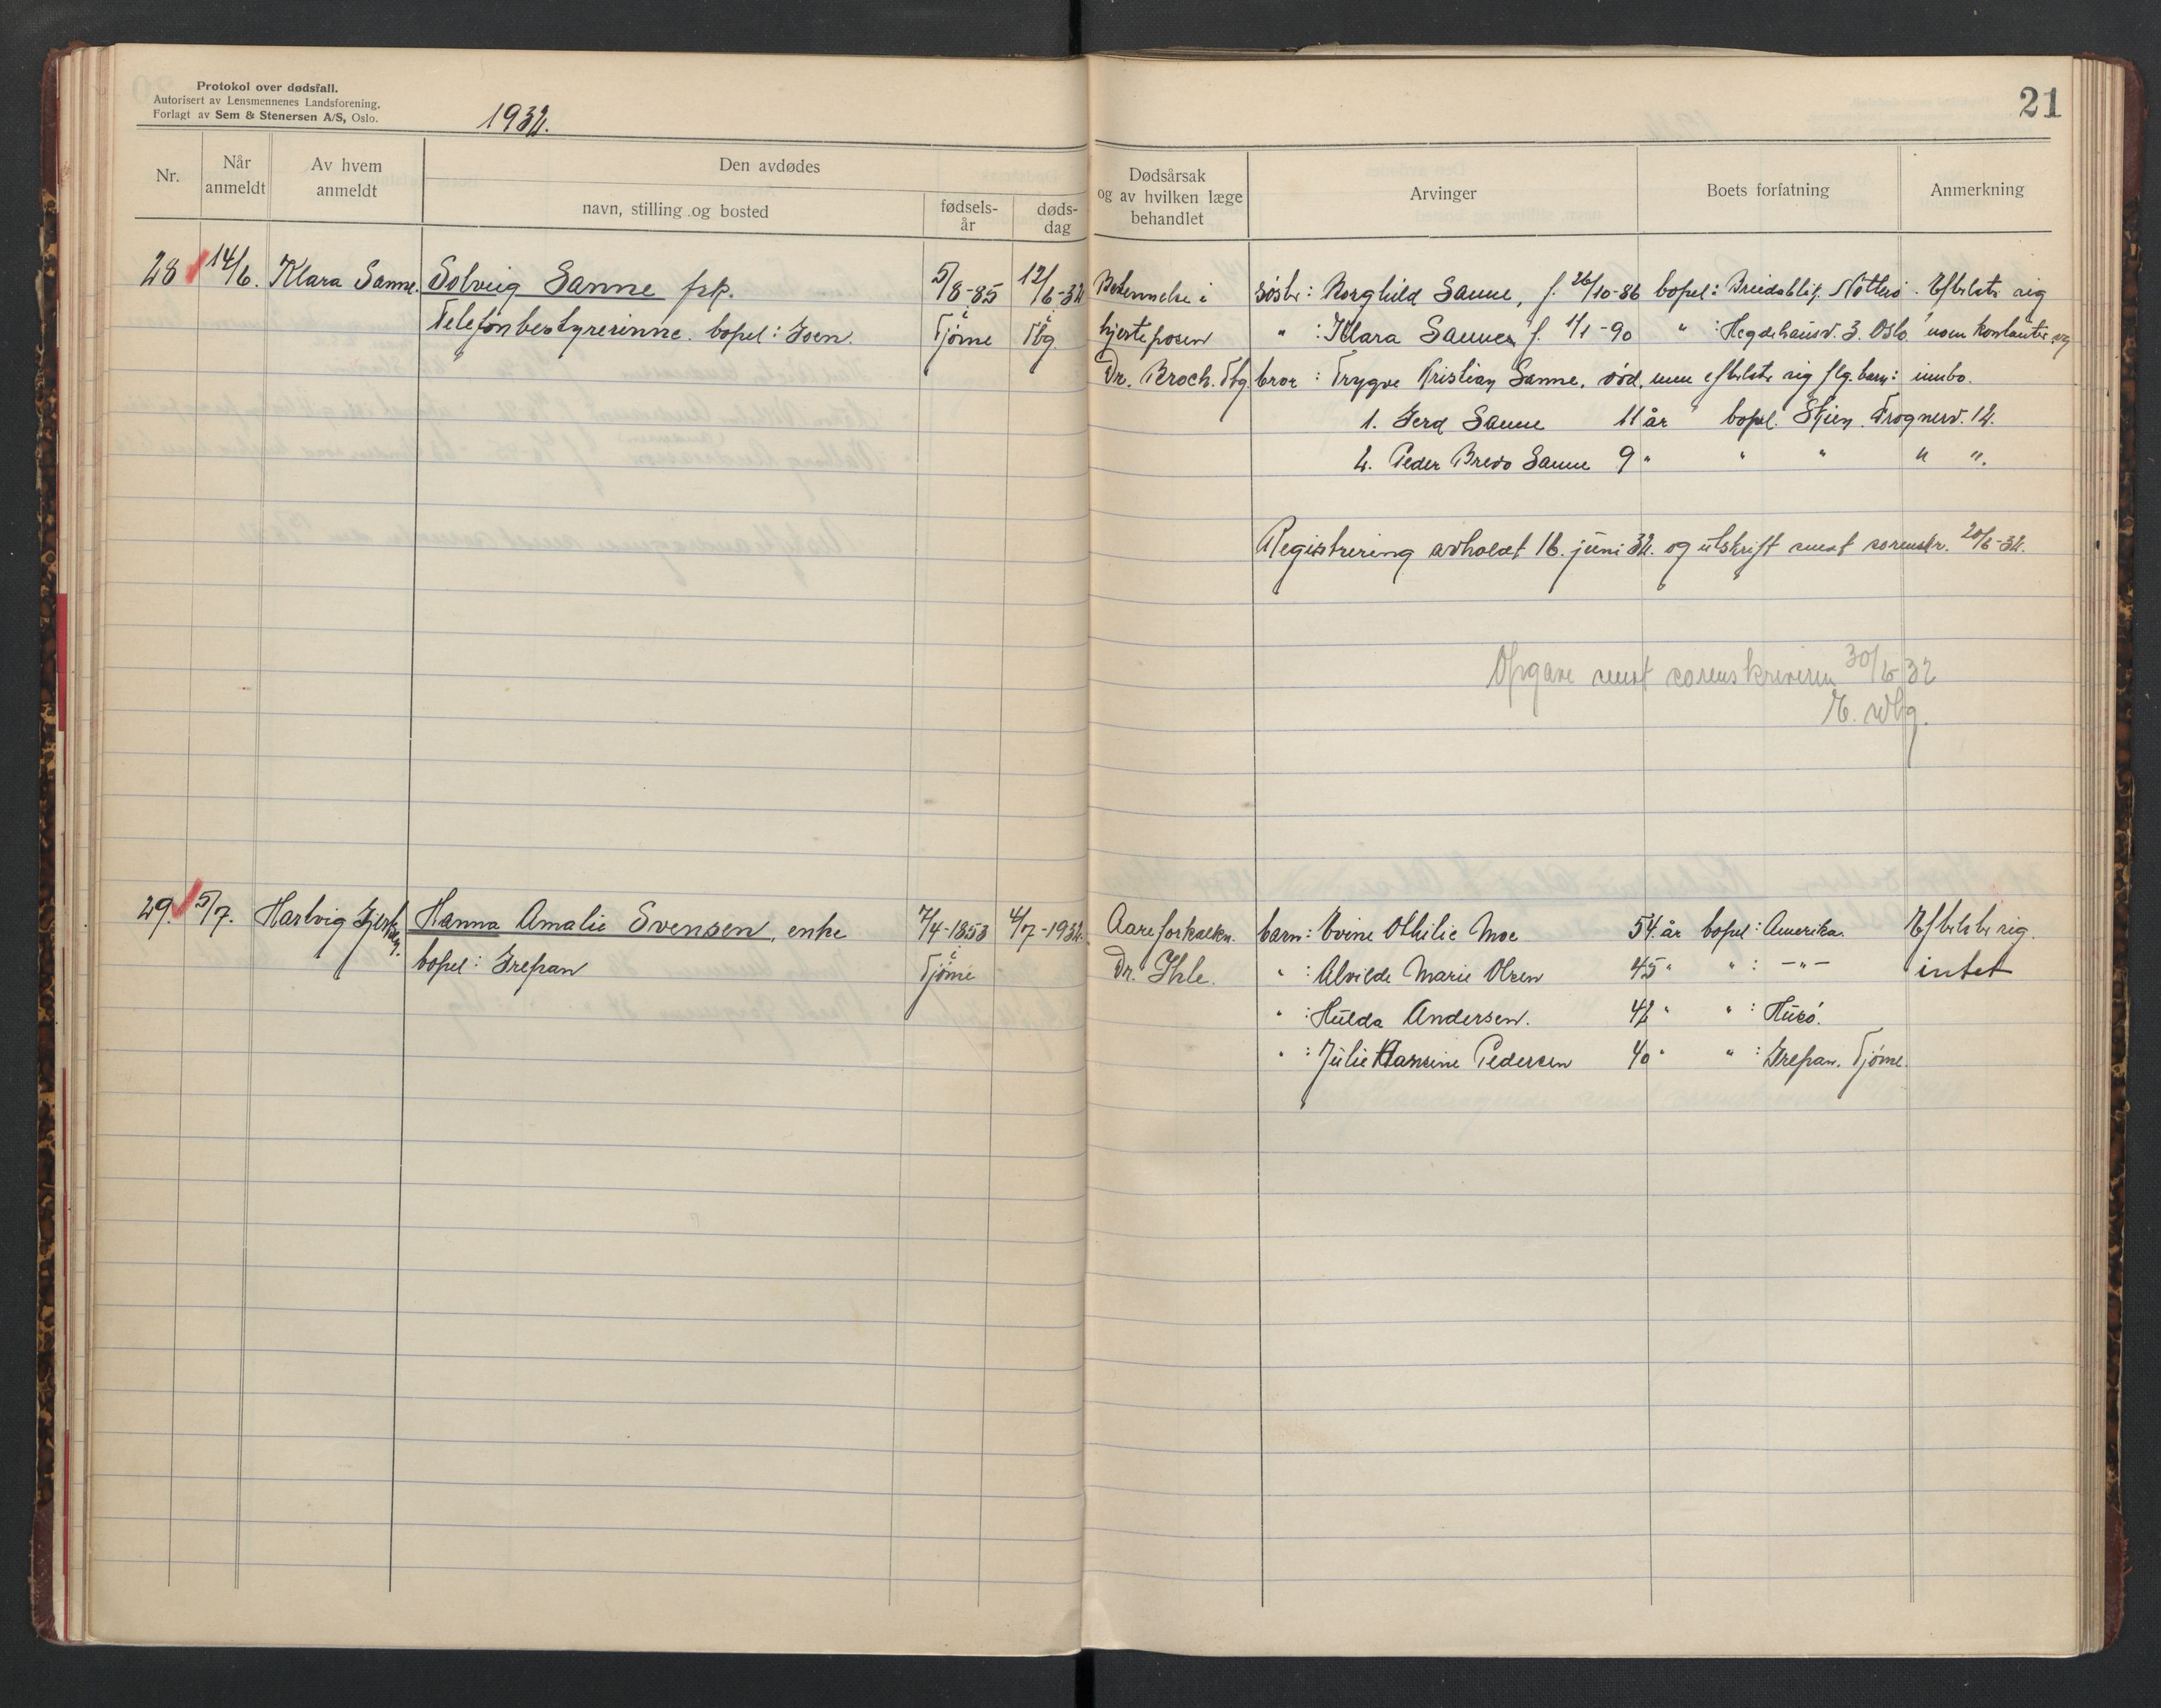 Protokol over dødsfall.
Autorisert av Lensmennenes Landsforening.
Forlagt av Sem & Stenersen A/S, Oslo.
1932.
21
Nr.
Når anmeldt
Av hvem anmeldt
Den avdødes
navn, stilling og bosted
fødsels-år
døds-dag
Dødsårsak og av hvilken læge behandlet
Arvinger
Boets forfatning
Anmerkning
28 14/6. Klara Sanne. Solveig Sanne frk. 5/8-85 12/6-32 Betennelse i søster: Borghild Sanne, f. 26/10-86 bopel: Breidablik. Nøtterö. Efterlate sig
Telefonbestyrerinne. bopel: Ioen. i Tjöme i Tbg. hjerteposen " : Klara Sanne f. 1/1-90 " : Hegdehausv. 3. Oslo noen kontanter og
Dr. Broch. Tbg. bror : Trygve Kristian Sanne, död, men efterlate sig flg. barn: innbo.
1. Gerd Sanne 11 år bopel. Skien. Frognerv. 12.
2. Peder Bredo Sanne 9 " " " " ".
Registrering avholdt 16. juni 32. og utskrift sendt sorenskr. 20/6-32.
Opgave sendt sorenskriveren 30/6 32
29. 5/7. Hartvig Hanna Amalie Svensen, enke 7/4-1853 4/7-1932. Aareforkalkn. barn: Evine Othilie Moe 54 år bopel: Amerika. Efterlate sig
bopel: Grepan i Tjöme Dr. Ihle. " : Alvilde Marie Olsen 45 " " : -"- intet
" : Hulda Andersen. 42 " " : Husö.
" : Julie Hansine Pedersen 40 " " : Grepan. Tjöme.